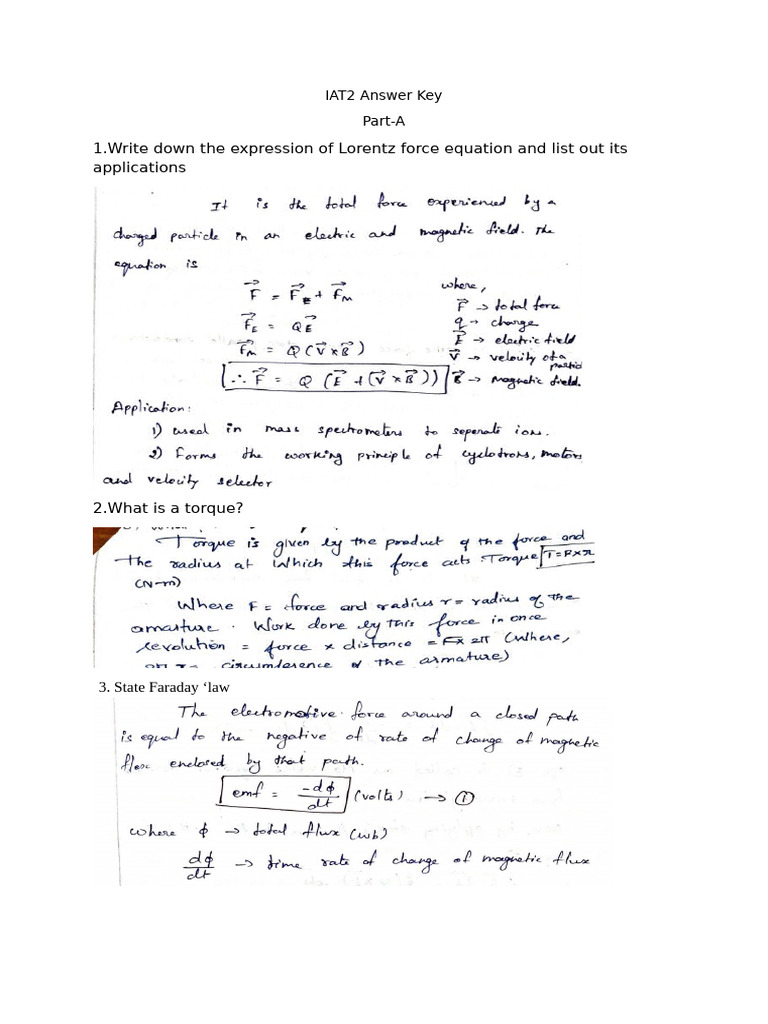 IAT2 Answer Key
Part-A
1.Write down the expression of Lorentz force equation and list out its
applications
It is the total force experienced by a
charged particle in an electric and magnetic field. The
equation is
F⃗ = F⃗E + F⃗M
F⃗E = QE⃗
F⃗M = Q(V⃗ × B⃗)
∴ F⃗ = Q (E⃗ + (V⃗ × B⃗))
where,
F⃗ → total force
q → charge
E⃗ → electric field
V⃗ → velocity of a
particl
B⃗ → magnetic field.
Application:
1) used in mass spectrometers to seperate ions.
2) Forms the working principle of cyclotrons, motors
and velocity selector
2.What is a torque?
Torque is given by the product of the force and
the radius at which this force acts Torque T = F × r
(N-m)
Where F = force and radius r = radius of the
armature. Work done by this force in once
revolution = force × distance = F × 2π (where,
circumference of the armature)
3. State Faraday ‘law
The electromotive force around a closed path
is equal to the negative of rate of change of magnetic
flux enclosed by that path.
emf = -dϕ/dt (volts) → ①
where ϕ → total flux (wb)
dϕ/dt → time rate of change of magnetic flux